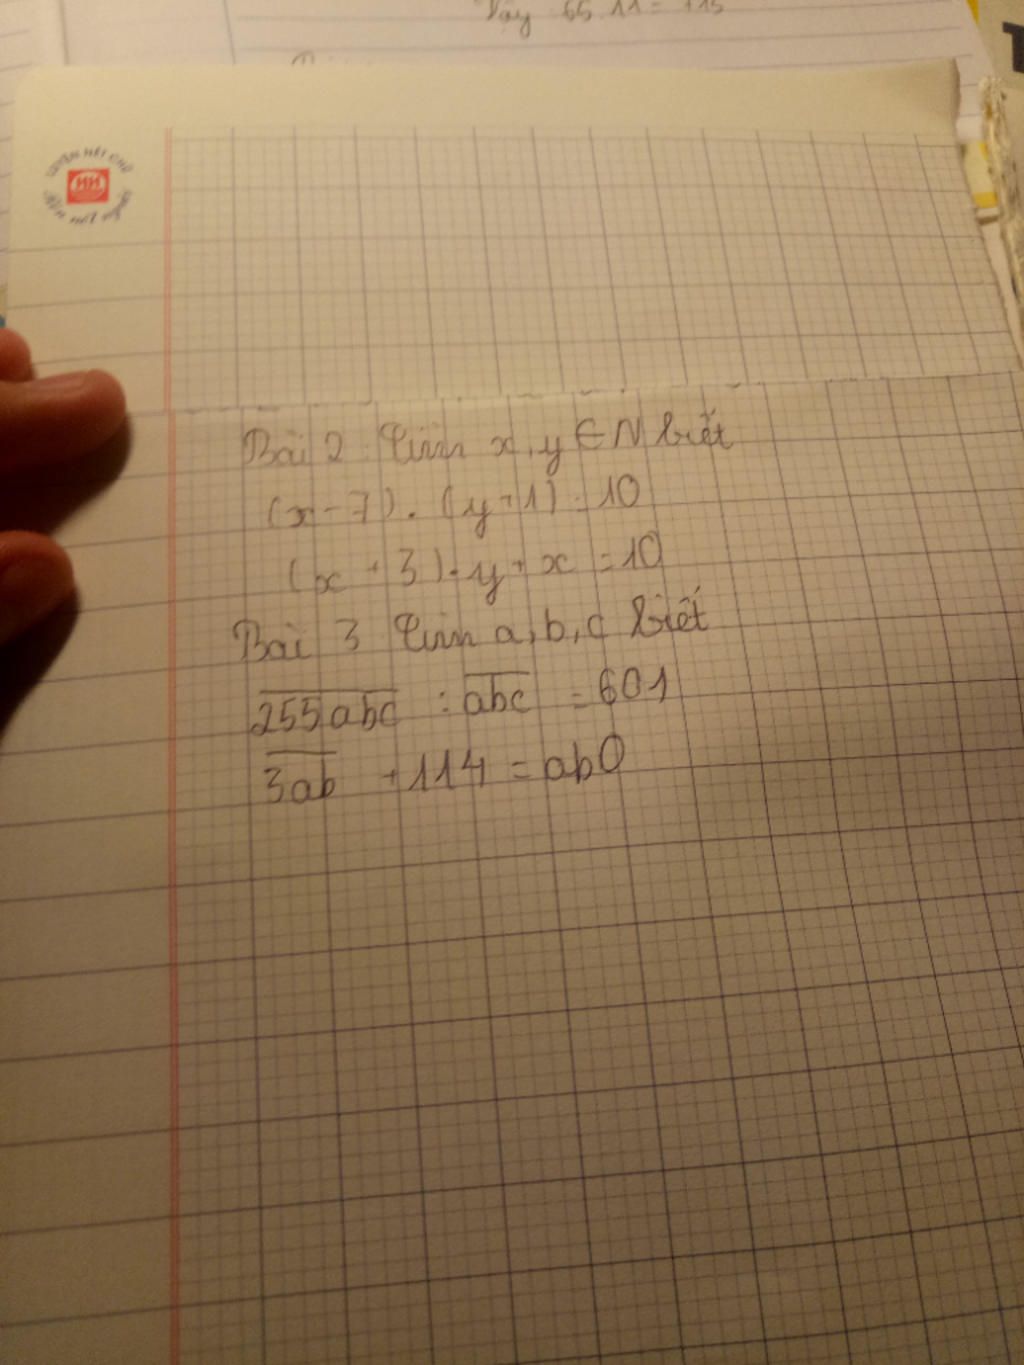 Vậy 65.11 = 715
Bài 2 Tìm x, y ∈ N biết
(x - 7) . (y + 1) = 10
(x + 3) . y + x = 10
Bài 3 Tìm a, b, c biết
255abc : abc = 601
3ab + 114 = ab0